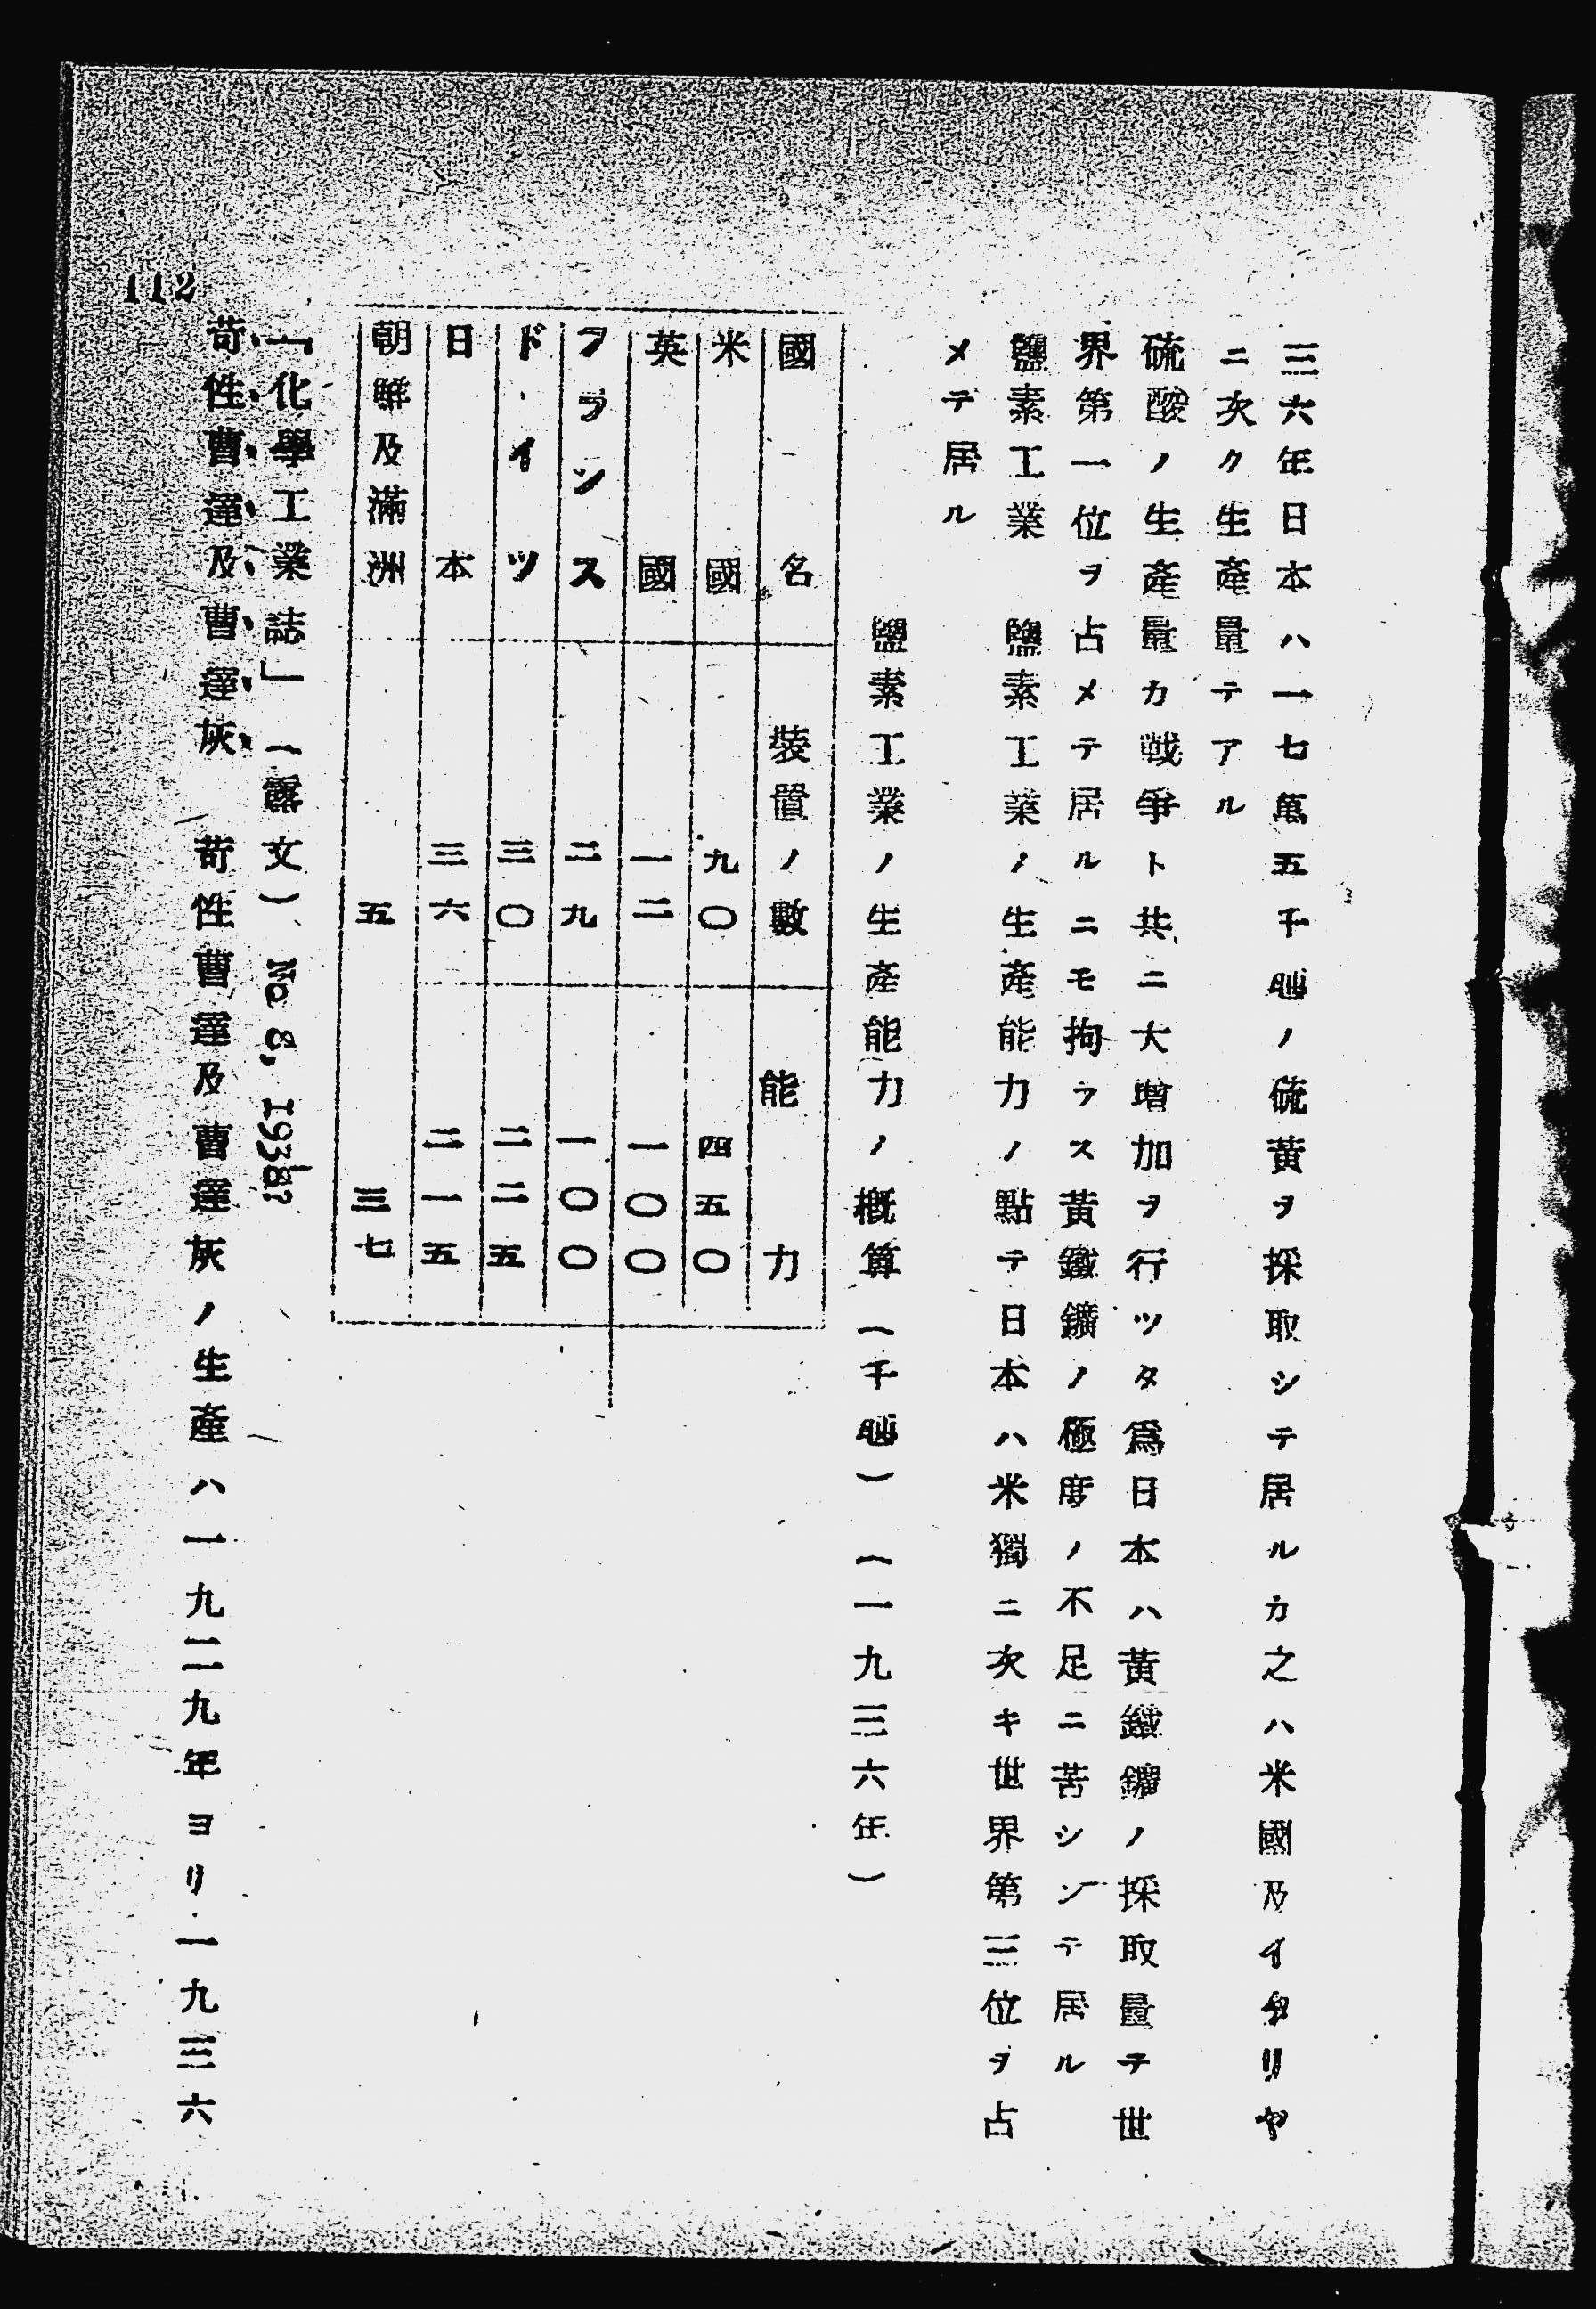 三六年日本ハ一七萬五千瓲ノ硫黃ヲ採取シテ居ルカ之ハ米國及イタリヤ
ニ次ク生產量テアル
硫酸ノ生產量カ戦爭ト共ニ大增加ヲ行ツタ爲日本ハ黃鐵鑛ノ採取量テ世
界第一位ヲ占メテ居ルニモ拘ラス黃鐵鑛ノ極度ノ不足ニ苦シンテ居ル
鹽素工業 鹽素工業ノ生產能力ノ點テ日本ハ米獨ニ次キ世界第三位ヲ占
メテ居ル
鹽素工業ノ生產能力ノ概算(千瓲)(一九三六年)
國名 裝置ノ數 能力
米國 九〇 四五〇
英國 一二 一〇〇
フランス 二九 一〇〇
ドイツ 三〇 二二五
日本 三六 二一五
朝鮮及滿洲 五 三七
「化學工業誌」(露文) No 8, 1938?
苛性曹達及曹達灰 苛性曹達及曹達灰ノ生產ハ一九二九年ヨリ一九三六
112